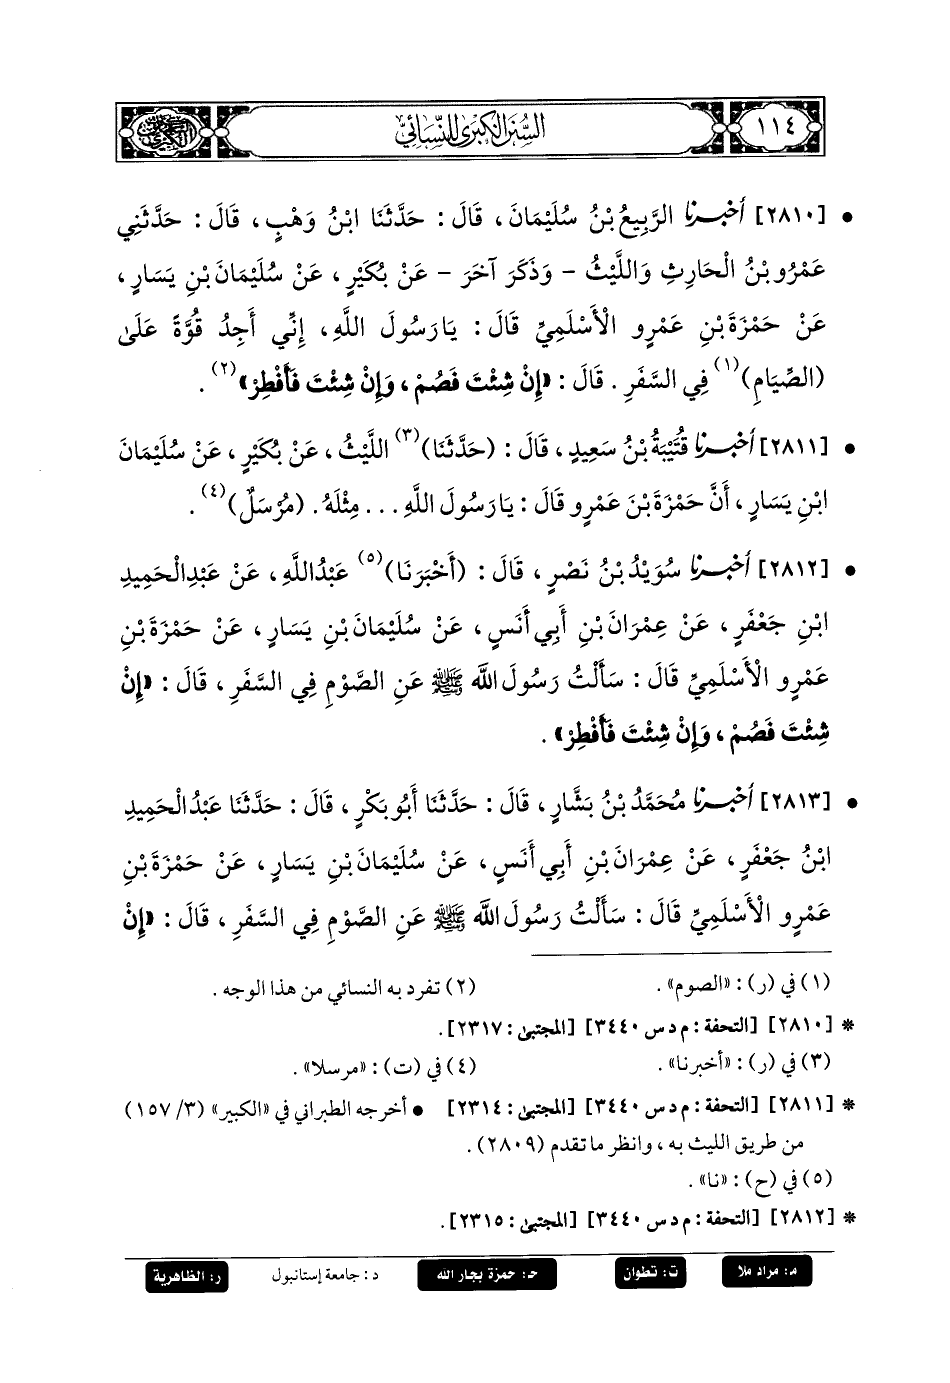 ١١٤
السنن الكبرى للنسائي
• [٢٨١٠] أخبرنا الرَّبِيعُ بْنُ سُلَيْمَانَ، قَالَ: حَدَّثَنَا ابْنُ وَهْبٍ، قَالَ: حَدَّثَنِي
عَمْرُو بْنُ الْحَارِثِ وَاللَّيْثُ - وَذَكَرَ آخَرَ - عَنْ بُكَيْرٍ، عَنْ سُلَيْمَانَ بْنِ يَسَارٍ،
عَنْ حَمْزَةَ بْنِ عَمْرٍو الْأَسْلَمِيِّ قَالَ: يَا رَسُولَ اللَّهِ، إِنِّي أَجِدُ قُوَّةً عَلَى
(الصِّيَامِ)(١) فِي السَّفَرِ. قَالَ: «إِنْ شِئْتَ فَصُمْ، وَإِنْ شِئْتَ فَأَفْطِرْ»(٢).
• [٢٨١١] أخبرنا قُتَيْبَةُ بْنُ سَعِيدٍ، قَالَ: (حَدَّثَنَا)(٣) اللَّيْثُ، عَنْ بُكَيْرٍ، عَنْ سُلَيْمَانَ
ابْنِ يَسَارٍ، أَنَّ حَمْزَةَ بْنَ عَمْرٍو قَالَ: يَا رَسُولَ اللَّهِ... مِثْلَهُ. (مُرْسَلٌ)(٤).
• [٢٨١٢] أخبرنا سُوَيْدُ بْنُ نَصْرٍ، قَالَ: (أَخْبَرَنَا)(٥) عَبْدُ اللَّهِ، عَنْ عَبْدِ الْحَمِيدِ
ابْنِ جَعْفَرٍ، عَنْ عِمْرَانَ بْنِ أَبِي أَنَسٍ، عَنْ سُلَيْمَانَ بْنِ يَسَارٍ، عَنْ حَمْزَةَ بْنِ
عَمْرٍو الْأَسْلَمِيِّ قَالَ: سَأَلْتُ رَسُولَ اللَّه ﷺ عَنِ الصَّوْمِ فِي السَّفَرِ، قَالَ: «إِنْ
شِئْتَ فَصُمْ، وَإِنْ شِئْتَ فَأَفْطِرْ».
• [٢٨١٣] أخبرنا مُحَمَّدُ بْنُ بَشَّارٍ، قَالَ: حَدَّثَنَا أَبُو بَكْرٍ، قَالَ: حَدَّثَنَا عَبْدُ الْحَمِيدِ
ابْنُ جَعْفَرٍ، عَنْ عِمْرَانَ بْنِ أَبِي أَنَسٍ، عَنْ سُلَيْمَانَ بْنِ يَسَارٍ، عَنْ حَمْزَةَ بْنِ
عَمْرٍو الْأَسْلَمِيِّ قَالَ: سَأَلْتُ رَسُولَ اللَّه ﷺ عَنِ الصَّوْمِ فِي السَّفَرِ، قَالَ: «إِنْ
(١) في (ر): «الصوم». (٢) تفرد به النسائي من هذا الوجه.
* [٢٨١٠] [التحفة: م د س ٣٤٤٠] [المجتبى: ٢٣١٧].
(٣) في (ر): «أخبرنا». (٤) في (ت): «مرسلا».
* [٢٨١١] [التحفة: م د س ٣٤٤٠] [المجتبى: ٢٣١٤] • أخرجه الطبراني في «الكبير» (٣/ ١٥٧)
من طريق الليث به، وانظر ما تقدم (٢٨٠٩).
(٥) في (ح): «نا».
* [٢٨١٢] [التحفة: م د س ٣٤٤٠] [المجتبى: ٢٣١٥].
م: مراد ملا ت: تطوان حـ: حمزة بجار الله د: جامعة إستانبول ر: الظاهرية